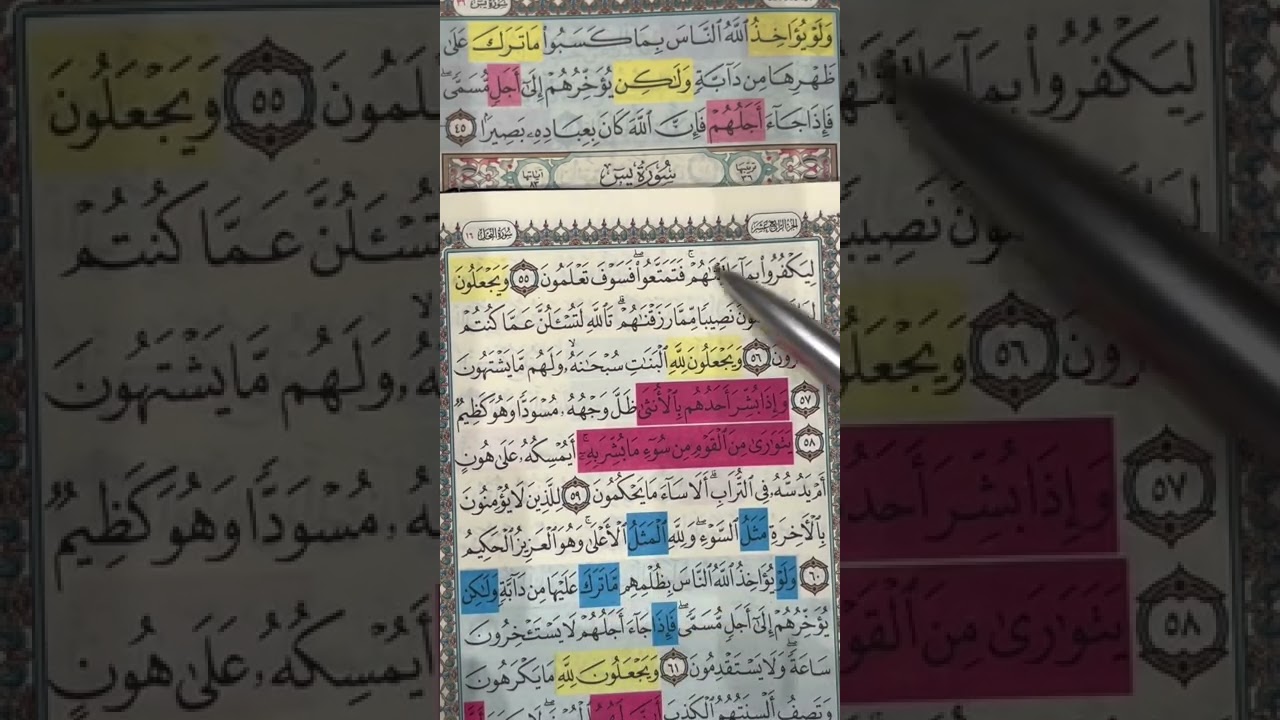 سُورَةُ يسٓ ٣٦
وَلَوْ يُؤَاخِذُ ٱللَّهُ ٱلنَّاسَ بِمَا كَسَبُوا۟ مَا تَرَكَ عَلَىٰ
ظَهْرِهَا مِن دَآبَّةٍ وَلَٰكِن يُؤَخِّرُهُمْ إِلَىٰٓ أَجَلٍ مُّسَمًّى ۖ
فَإِذَا جَآءَ أَجَلُهُمْ فَإِنَّ ٱللَّهَ كَانَ بِعِبَادِهِۦ بَصِيرًۢا ٤٥
ترتيبها ٣٦ سُورَةُ يسٓ آياتها ٨٣
الجزء الرابع عشر سُورَةُ النَّحْل ١٦
لِيَكْفُرُوا۟ بِمَآ ءَاتَيْنَٰهُمْ ۚ فَتَمَتَّعُوا۟ ۖ فَسَوْفَ تَعْلَمُونَ ٥٥ وَيَجْعَلُونَ
نَصِيبًا مِّمَّا رَزَقْنَٰهُمْ ۗ تَٱللَّهِ لَتُسْـَٔلُنَّ عَمَّا كُنتُمْ
٥٦ وَيَجْعَلُونَ لِلَّهِ ٱلْبَنَٰتِ سُبْحَٰنَهُۥ ۙ وَلَهُم مَّا يَشْتَهُونَ
٥٧ وَإِذَا بُشِّرَ أَحَدُهُم بِٱلْأُنثَىٰ ظَلَّ وَجْهُهُۥ مُسْوَدًّا وَهُوَ كَظِيمٌ
٥٨ يَتَوَٰرَىٰ مِنَ ٱلْقَوْمِ مِن سُوٓءِ مَا بُشِّرَ بِهِۦٓ ۚ أَيُمْسِكُهُۥ عَلَىٰ هُونٍ
أَمْ يَدُسُّهُۥ فِى ٱلتُّرَابِ ۗ أَلَا سَآءَ مَا يَحْكُمُونَ ٥٩ لِلَّذِينَ لَا يُؤْمِنُونَ
بِٱلْءَاخِرَةِ مَثَلُ ٱلسَّوْءِ ۖ وَلِلَّهِ ٱلْمَثَلُ ٱلْأَعْلَىٰ ۚ وَهُوَ ٱلْعَزِيزُ ٱلْحَكِيمُ
٦٠ وَلَوْ يُؤَاخِذُ ٱللَّهُ ٱلنَّاسَ بِظُلْمِهِم مَّا تَرَكَ عَلَيْهَا مِن دَآبَّةٍ وَلَٰكِن
يُؤَخِّرُهُمْ إِلَىٰٓ أَجَلٍ مُّسَمًّى ۖ فَإِذَا جَآءَ أَجَلُهُمْ لَا يَسْتَـْٔخِرُونَ
سَاعَةً ۖ وَلَا يَسْتَقْدِمُونَ ٦١ وَيَجْعَلُونَ لِلَّهِ مَا يَكْرَهُونَ
وَتَصِفُ أَلْسِنَتُهُمُ ٱلْكَذِبَ